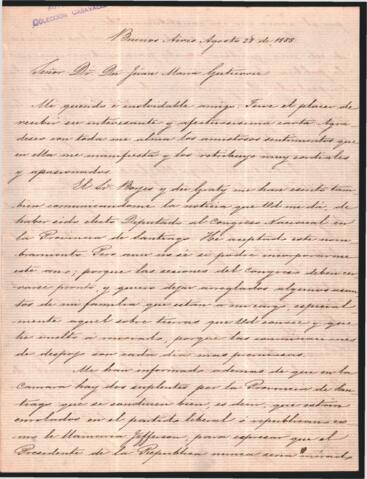 COLECCION CARAVALL
Buenos Aires, Agosto 27 de 1858
Señor Dr. Dn Juan Maria Gutierrez
Mi querido é inolvidable amigo: Tuve el placer de
recibir su interesante y afectuosisima carta. Agra-
desco con toda mi alma los amistosos sentimientos que
en ella me manifiesta y los retribuyo muy cordiales
y apasionados.
El Sr. y du Graty me han escrito tam
bien comunicandome la noticia que Ud me dá, de
haber sido electo Deputado al Congreso Nacional en
la Provincia de Santiago. Hé aceptado este nom-
bramiento. Pero aun no sé si podré incorporarme
este año; porque las sesiones del Congreso deben cer-
rarse pronto, y quiero dejar arreglados algunos asun
tos de mi familia que estan a mi cargo, especial-
mente aquel sobre tierras que Ud conoce y que
he vuelto á renovarlo, porque las
de despojo son cada dia mas
Me han informado ademas de que en la
Camara hay dos suplentes por la Provincia de San-
tiago que se conducen bien, es decir, que estan
enrolados en el partido liberal ó republicano co-
mo le llamaria Jefferson, para espresar que el
Presidente de la Republica nunca será mirado